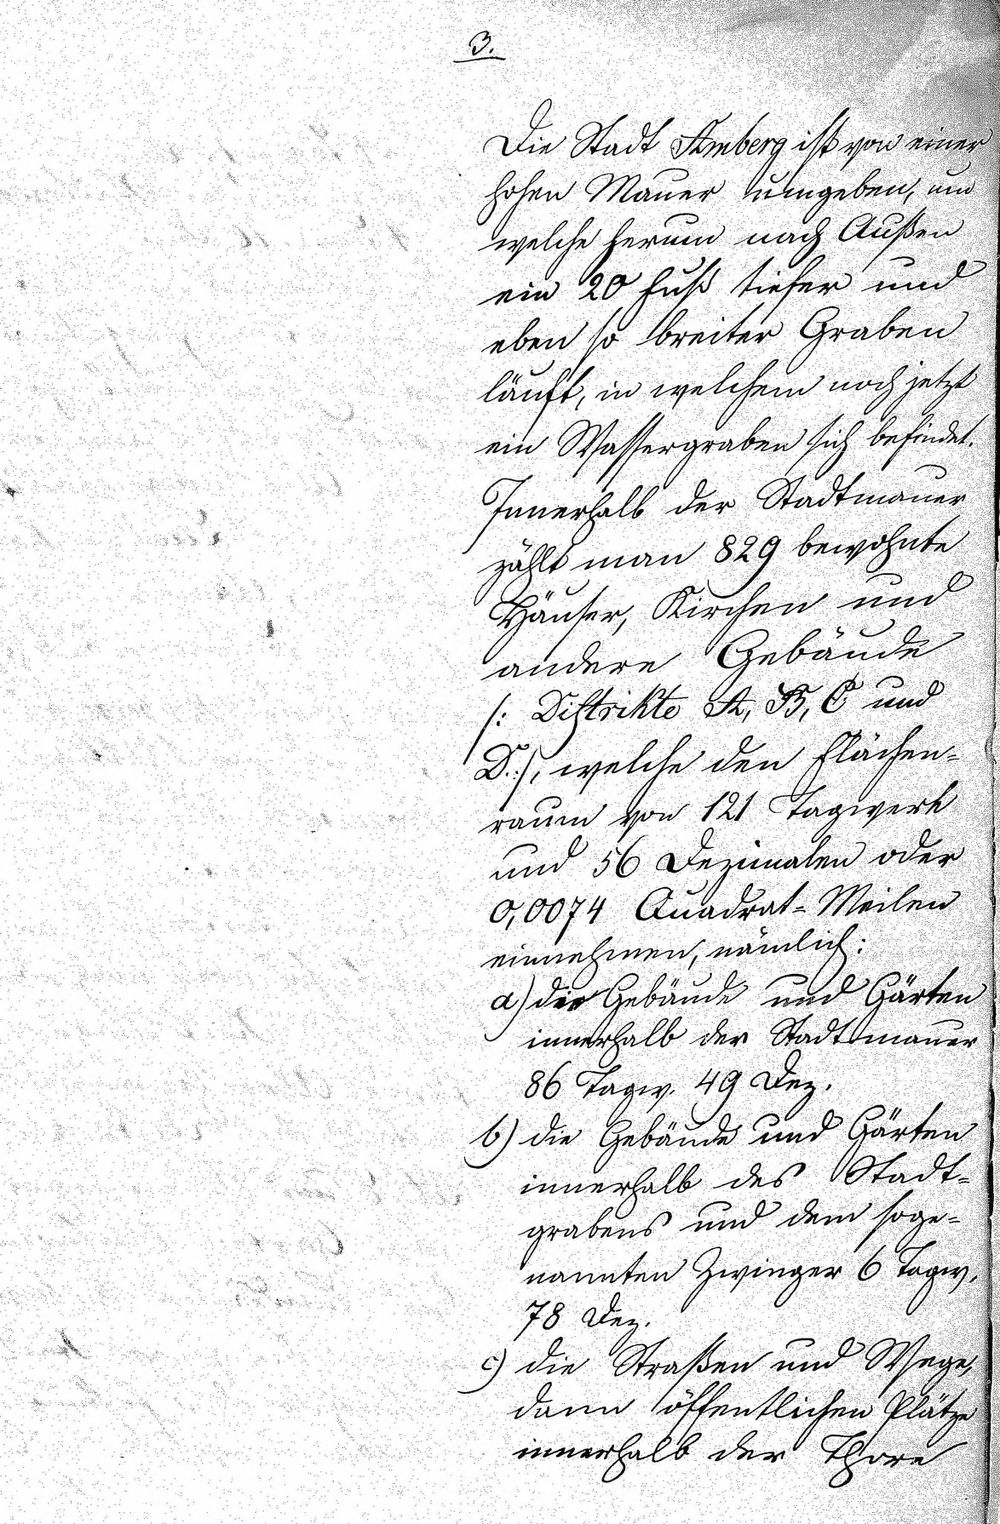 3.
Die Stadt Amberg ist von einer
hohen Mauer umgeben, um
welche herum nach Außen
ein 20 Fuß tiefer und
eben so breiter Graben
läuft, in welchem noch jetzt
ein Wassergraben sich befindet.
Innerhalb der Stadtmauer
zählt man 829 bewohnte
Häuser, Kirchen und
andere Gebäude
/: Distrikte A, B, C und
D. :/, welche den Flächen=
raum von 121 Tagwerk
und 56 Dezimalen oder
0,0074 Quadrat=Meilen
einnehmen, nämlich:
a) die Gebäude und Gärten
innerhalb der Stadtmauer
86 Tagw. 49 Dez.
b) die Gebäude und Gärten
innerhalb des Stadt=
grabens und dem soge=
nannten Zwinger 6 Tagw.
78 Dez.
c) die Straßen und Wege,
dann öffentlichen Plätze
innerhalb der Thore